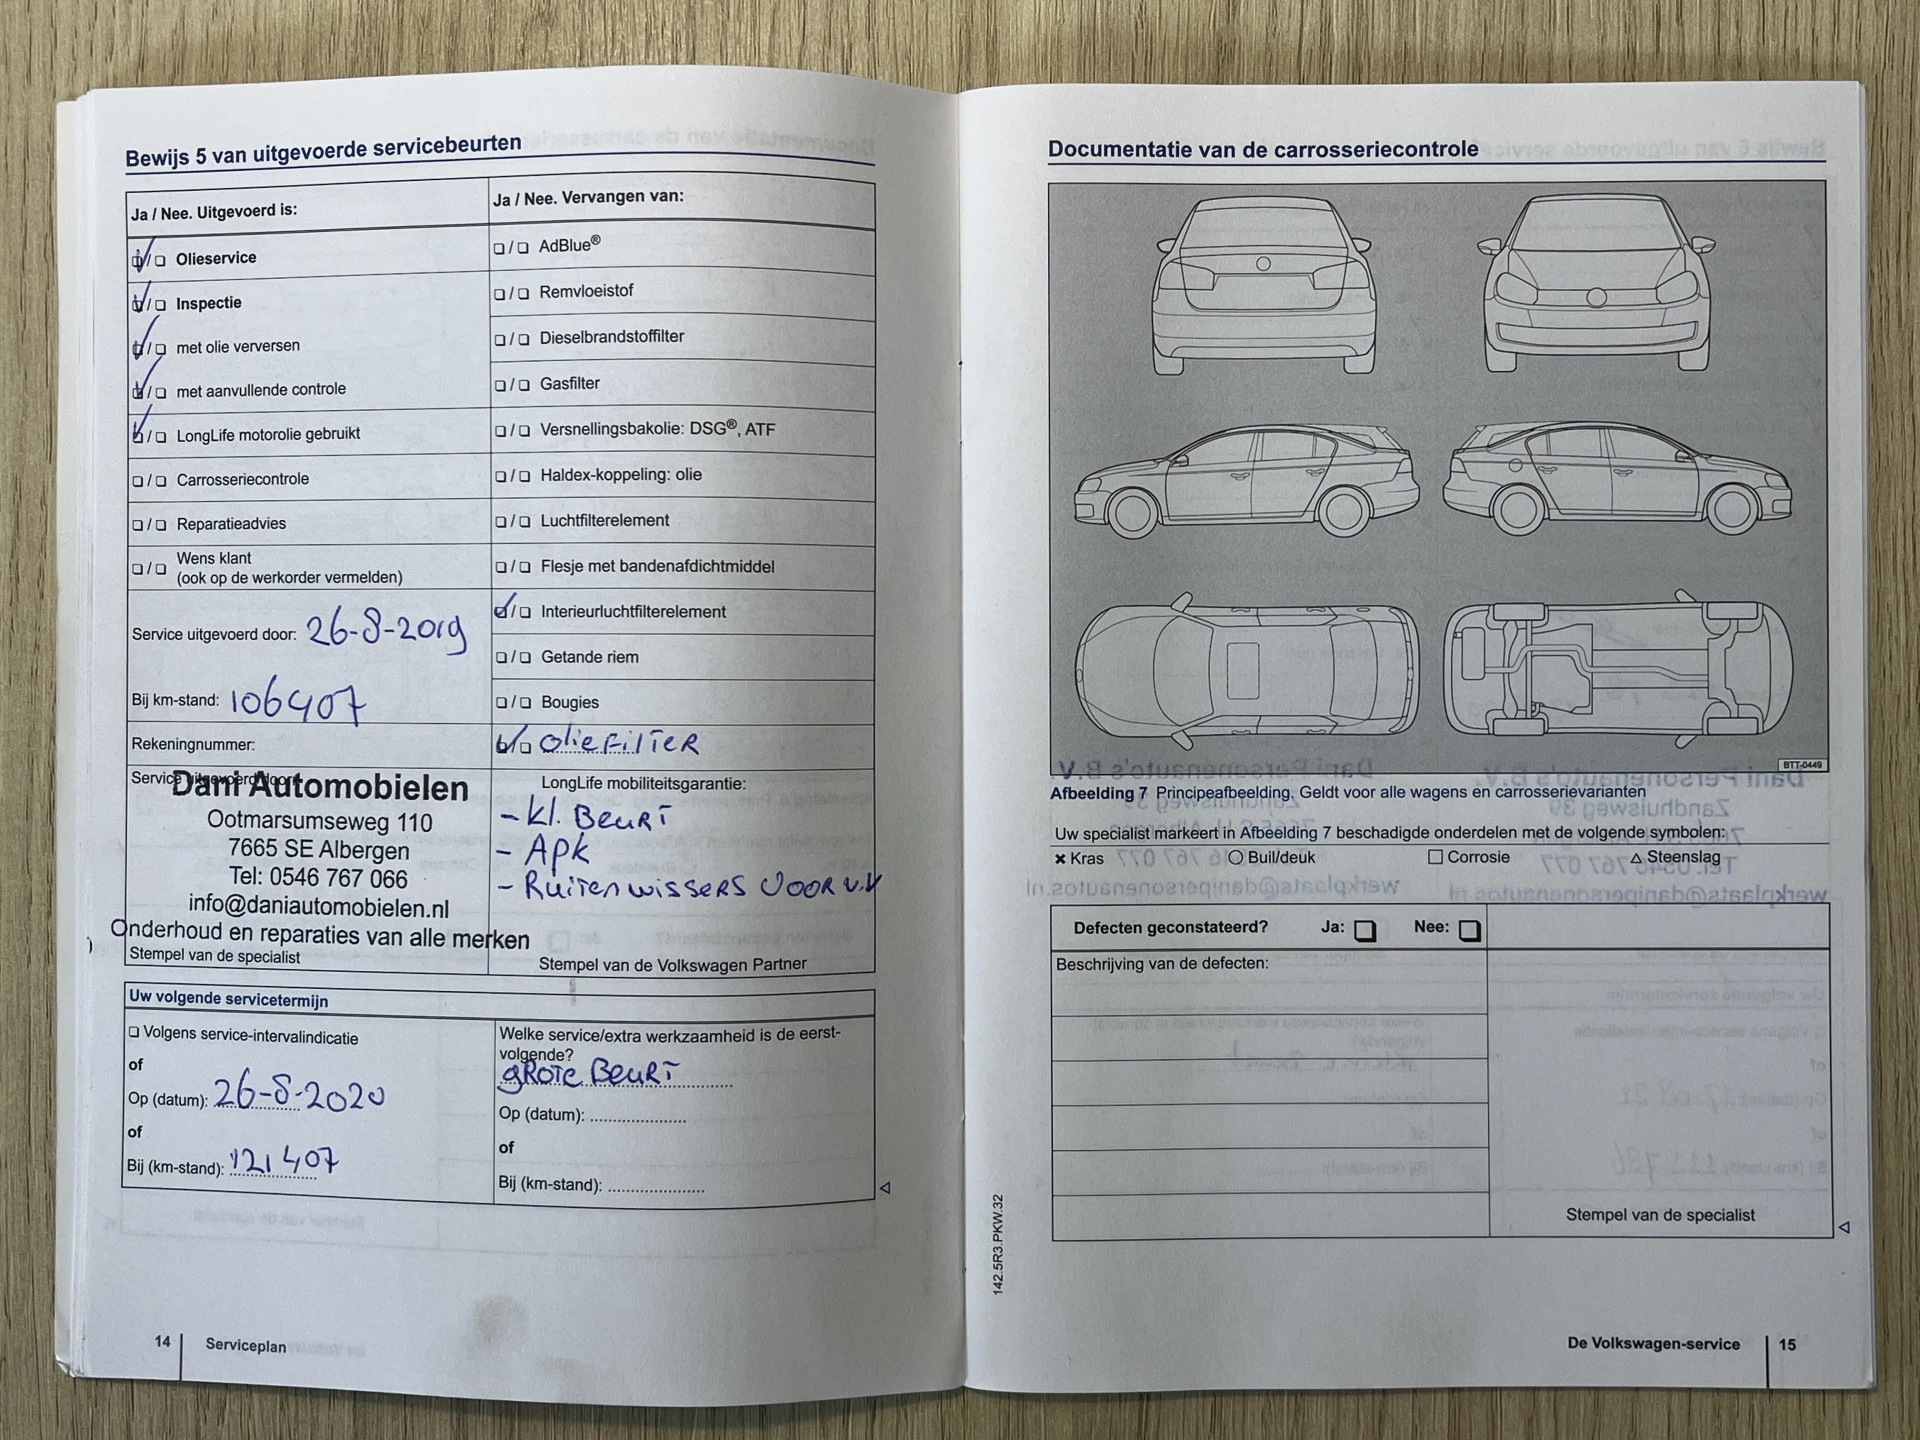 Bewijs 5 van uitgevoerde servicebeurten
Ja / Nee. Uitgevoerd is:
Olieservice
Inspectie
met olie verversen
met aanvullende controle
LongLife motorolie gebruikt
Carrosseriecontrole
Reparatieadvies
Wens klant
(ook op de werkorder vermelden)
Service uitgevoerd door: 26-8-2019
Bij km-stand: 106407
Rekeningnummer:
Service uitgevoerd door:
Dani Automobielen
Ootmarsumseweg 110
7665 SE Albergen
Tel: 0546 767 066
info@daniautomobielen.nl
Onderhoud en reparaties van alle merken
Stempel van de specialist
Ja / Nee. Vervangen van:
AdBlue®
Remvloeistof
Dieselbrandstoffilter
Gasfilter
Versnellingsbakolie: DSG®, ATF
Haldex-koppeling: olie
Luchtfilterelement
Flesje met bandenafdichtmiddel
Interieurluchtfilterelement
Getande riem
Bougies
oliefilter
LongLife mobiliteitsgarantie:
- kl. Beurt
- Apk
- Ruitenwissers voor v.v
Stempel van de Volkswagen Partner
Uw volgende servicetermijn
Volgens service-intervalindicatie
of
Op (datum): 26-8-2020
of
Bij (km-stand): 121407
Welke service/extra werkzaamheid is de eerst-
volgende?
grote Beurt
Op (datum):
of
Bij (km-stand):
14 Serviceplan
Documentatie van de carrosseriecontrole
BTT-0449
Afbeelding 7 Principeafbeelding. Geldt voor alle wagens en carrosserievarianten
Uw specialist markeert in Afbeelding 7 beschadigde onderdelen met de volgende symbolen:
Kras Buil/deuk Corrosie Steenslag
Defecten geconstateerd? Ja: Nee:
Beschrijving van de defecten:
Stempel van de specialist
142.5R3.PKW.32
De Volkswagen-service 15